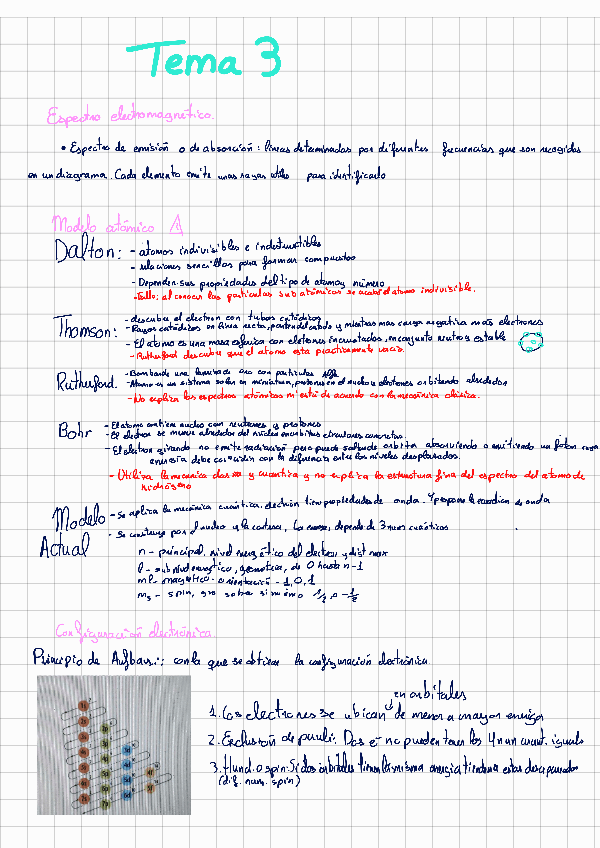 Tema 3
Espectro electromagnético.
• Espectro de emisión o de absorción: líneas determinadas por diferentes frecuencias que son recogidas
en un diagrama. Cada elemento emite unas rayas utiles para identificarlo
Modelo atómico
Dalton: - atomos indivisibles e indestructibles
- relaciones sencillas para formar compuestos
- Dependen sus propiedades del tipo de atomos y número
- Fallo: al conocer las particulas subatómicas se acaba el atomo indivisible.
Thomson: - descubre el electron con tubos catódicos
- Rayos catódicos en línea recta, parten del catodo y mientras mas carga negativa más electrones
- El atomo es una masa esferica con eletrones incrustados, en conjunto neutro y estable
- Rutherford descubre que el atomo esta practicamente vacio.
Rutherford. - Bombarde una lamina de oro con particulas
- Atomo es un sistema solar en miniatura, protones en el nucleo y eletrones orbitando alrededor
- No explica los espectros atómicos ni está de acuerdo con la mecánica clásica.
Bohr - El atomo contiene nucleo con neutrones y protones
- El electron se mueve alrededor del núcleo en orbitas circulares concretas.
- El electron girando no emite radiación pero puede saltar de orbita absorviendo o emitiendo un foton cuya
energía debe coincidir con la diferencia entre los niveles desplazados.
- Utiliza la mecanica clasica y cuantica y no explica la estructura fina del espectro del atomo de
hidrógeno
Modelo Actual - Se aplica la mecánica cuantica, electrón tiene propiedades de onda. Y propone la ecuación de onda
- Se construye por el nucleo y la corteza, La corteza, depende de 3 num cuánticos
n - principal. nivel energético del electron y dist max
l - subnivel energetico, geometria, de 0 hasta n-1
ml- magnético- orientación - 1, 0, 1
ms - spin, giro sobre si mismo 1/2 o -1/2
Configuración electrónica.
Principio de Aufbau.: con la que se obtiene la configuración electrónica.
en orbitales
1. Los electrones se ubican de menor a mayor energia
2. Exclusión de pauli. Dos e- no pueden tener los 4 num cuant. iguales
3. Hund. o spin. Si dos orbitales tienen la misma energia tienden a estar desapareados
(dif. num. spin)